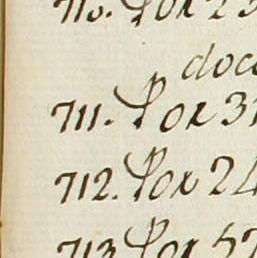 710. Por 23
doce
711. Por 31
712. Por 24
713. Por 52